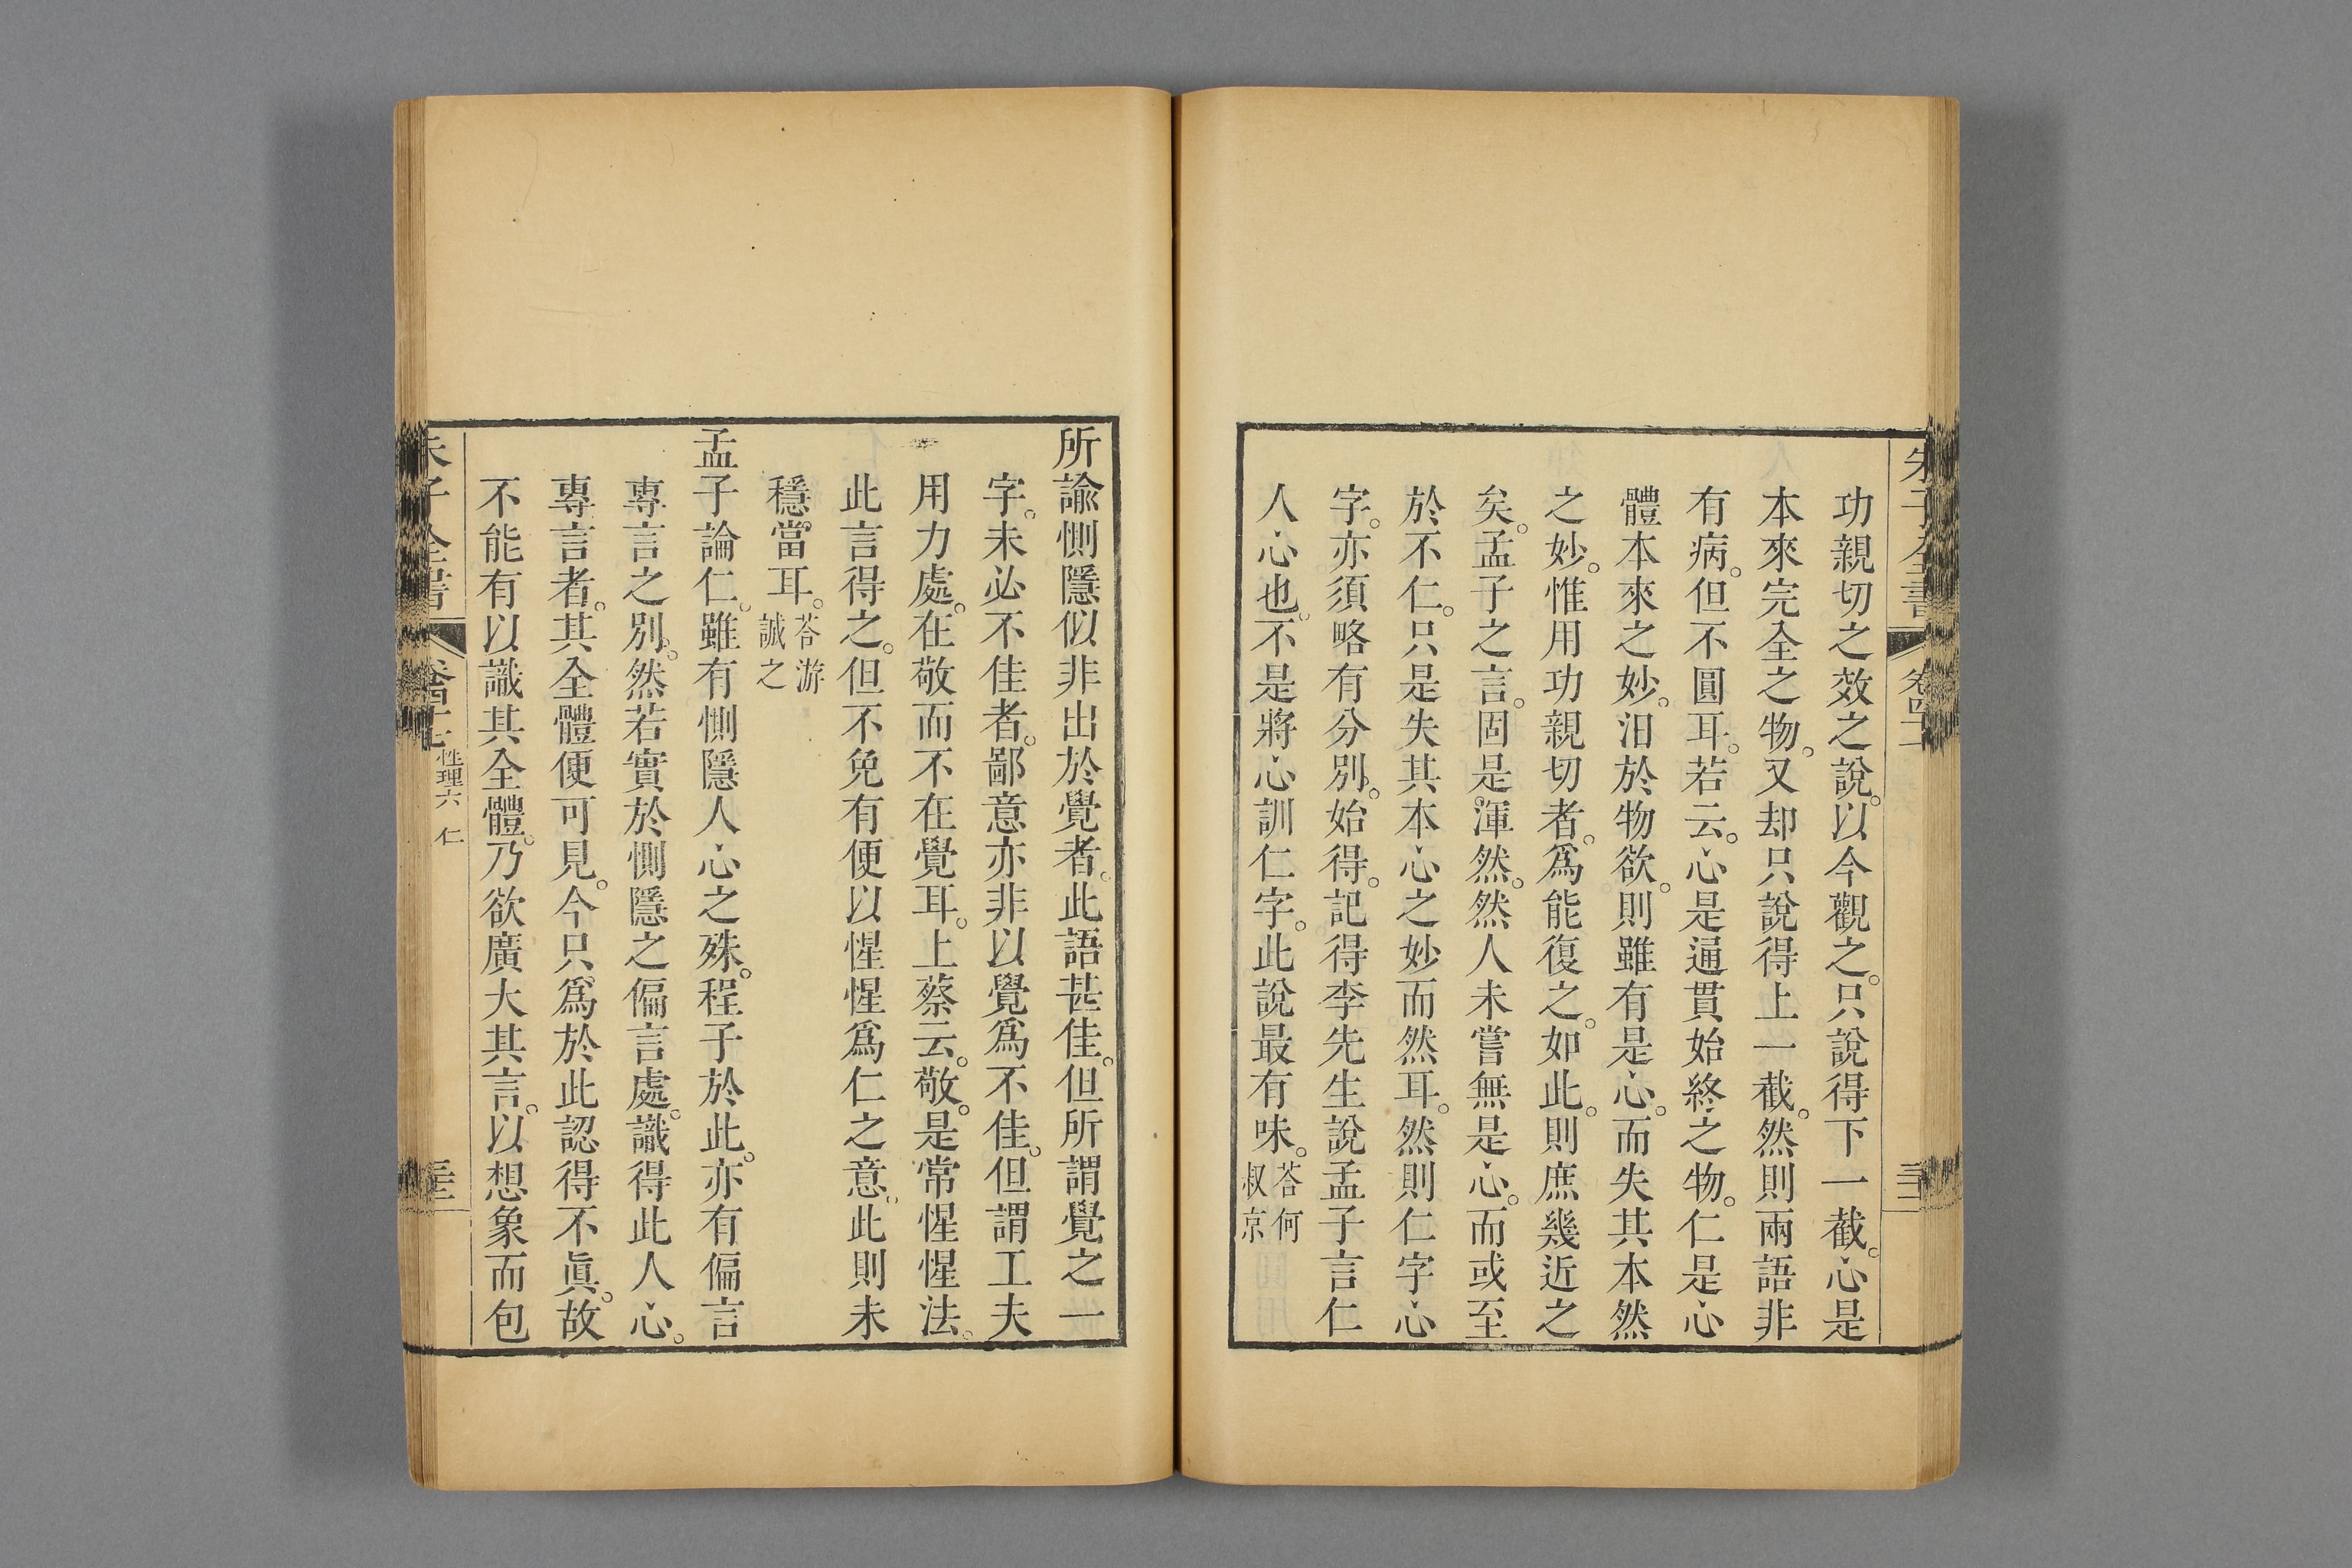 功親切之效之說。以今觀之。只說得下一截。心是
本來完全之物。又却只說得上一截。然則兩語非
有病。但不圓耳。若云。心是通貫始終之物。仁是心
體本來之妙。汩於物欲。則雖有是心。而失其本然
之妙。惟用功親切者。爲能復之。如此。則庶幾近之
矣。孟子之言。固是渾然。然人未嘗無是心。而或至
於不仁。只是失其本心之妙而然耳。然則仁字心
字。亦須略有分別。始得。記得李先生說孟子言仁
人心也。不是將心訓仁字。此說最有味。荅何
叔京
所諭惻隱似非出於覺者。此語甚佳。但所謂覺之一
字。未必不佳者。鄙意亦非以覺爲不佳。但謂工夫
用力處。在敬而不在覺耳。上蔡云。敬。是常惺惺法。
此言得之。但不免有便以惺惺爲仁之意。此則未
穩當耳。荅游
誠之
孟子論仁。雖有惻隱人心之殊。程子於此。亦有偏言
專言之別。然若實於惻隱之偏言處。識得此人心。
專言者。其全體便可見。今只爲於此認得不眞。故
不能有以識其全體。乃欲廣大其言。以想象而包
朱子全書
性理六 仁